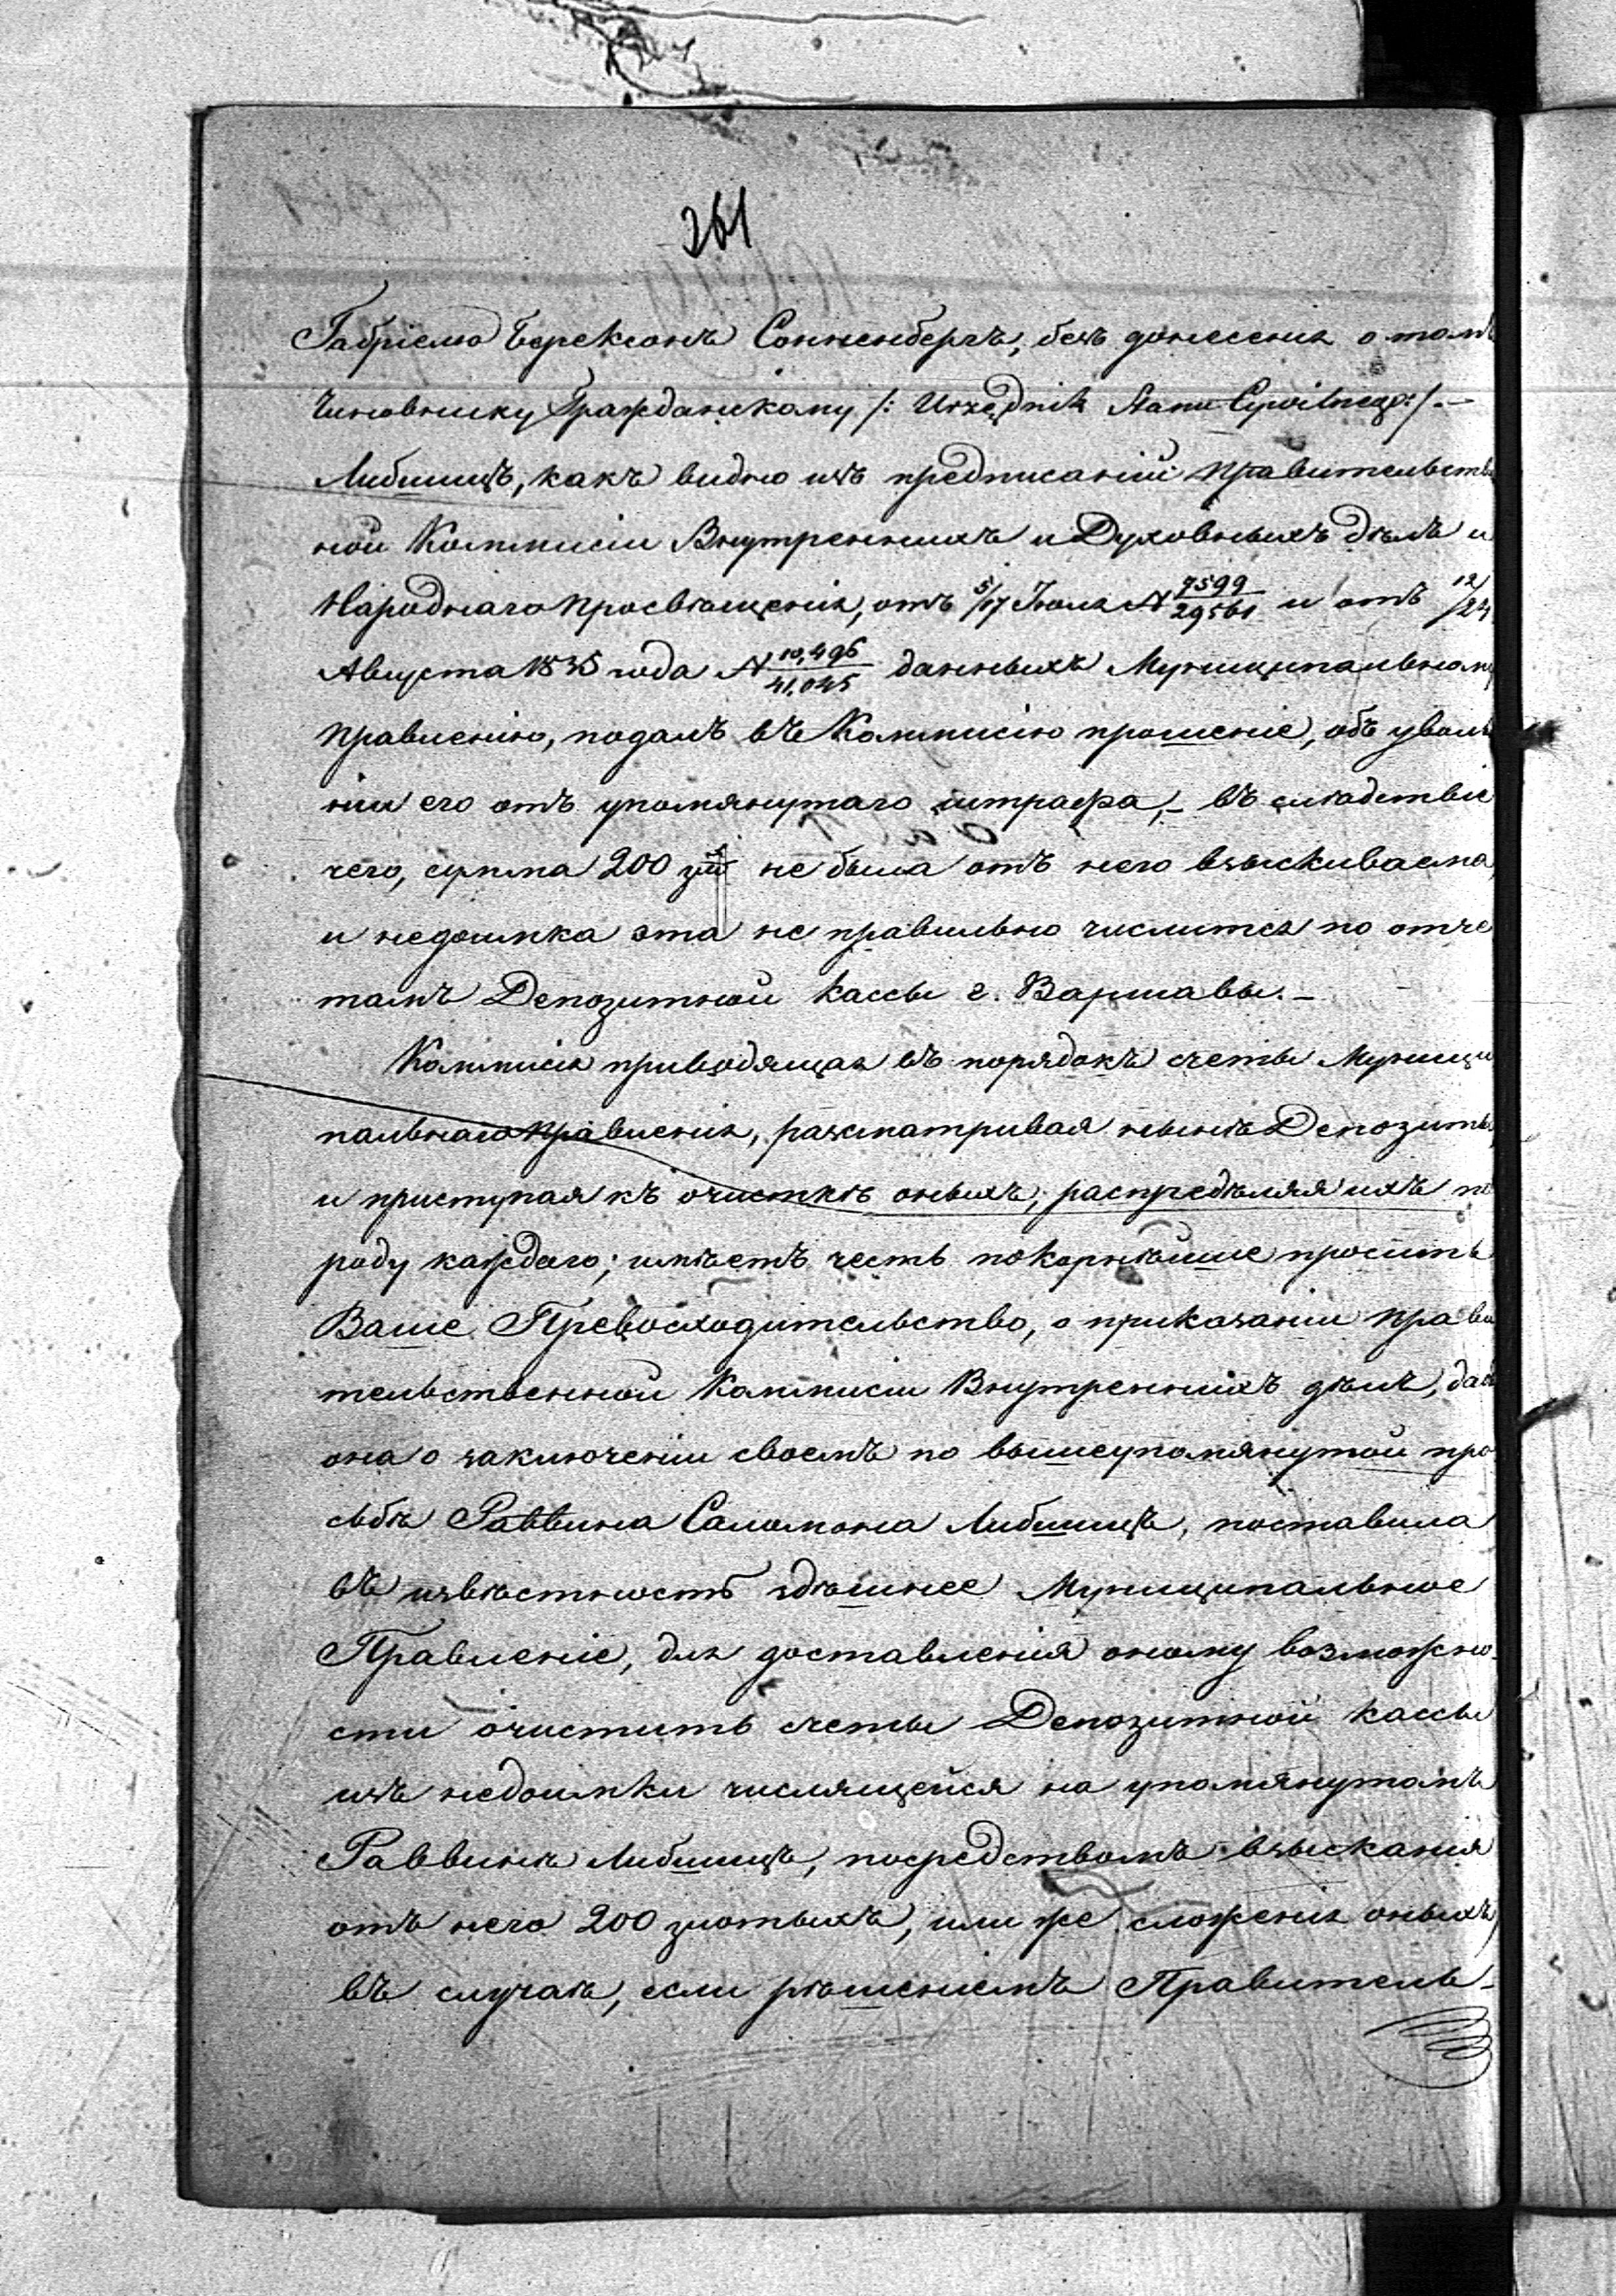 261
Габріелю Берексонъ Сонненбергъ, безъ донесенія о томъ
Чиновнику Гражданскому /: Urzędnik Stanu Cywilnego :/. –
Либшицъ, какъ видно изъ предписаній Правительствен
ной Коммисіи Внутреннихъ и Духовныхъ дѣлъ и
Народнаго просвѣщенія, отъ 5/17 Іюля N 7599/29561 и отъ 12/24
Августа 1835 года N 10,496/41,045 данныхъ Муниципальному
Правленію, подалъ въ Коммисію прошеніе, объ уволь
ніи его отъ упомянутаго штрафа, – въ слѣдствіе
чего, сумма 200 зл не была отъ него взыскиваема,
и недоимка эта не правильно числится по отче
тамъ Депозитной Кассы г. Варшавы. –
Коммисія приводящая въ порядокъ счеты Муници
пальнаго Правленія, разсматривая нынѣ Депозиты,
и приступая къ очисткѣ оныхъ, распредѣляя ихъ по
роду каждаго; имѣетъ честь покорнѣйше просить
Ваше Превосходительство, о приказаніи Прави
тельственной Коммисіи Внутреннихъ дѣлъ, дабы
она о заключеніи своемъ по вышеупомянутой про
сьбѣ Раввина Саломона Либшицъ, поставила
въ извѣстность здѣшнее Муниципальное
Правленіе, для доставленія оному возможно-
сти очистить счеты Депозитной Кассы
изъ недоимки числящейся на упомянутомъ
Раввинѣ Либшицъ, посредствомъ взысканія
отъ него 200 злотыхъ, или же сложенія оныхъ,
въ случаѣ, если рѣшеніемъ Правитель-